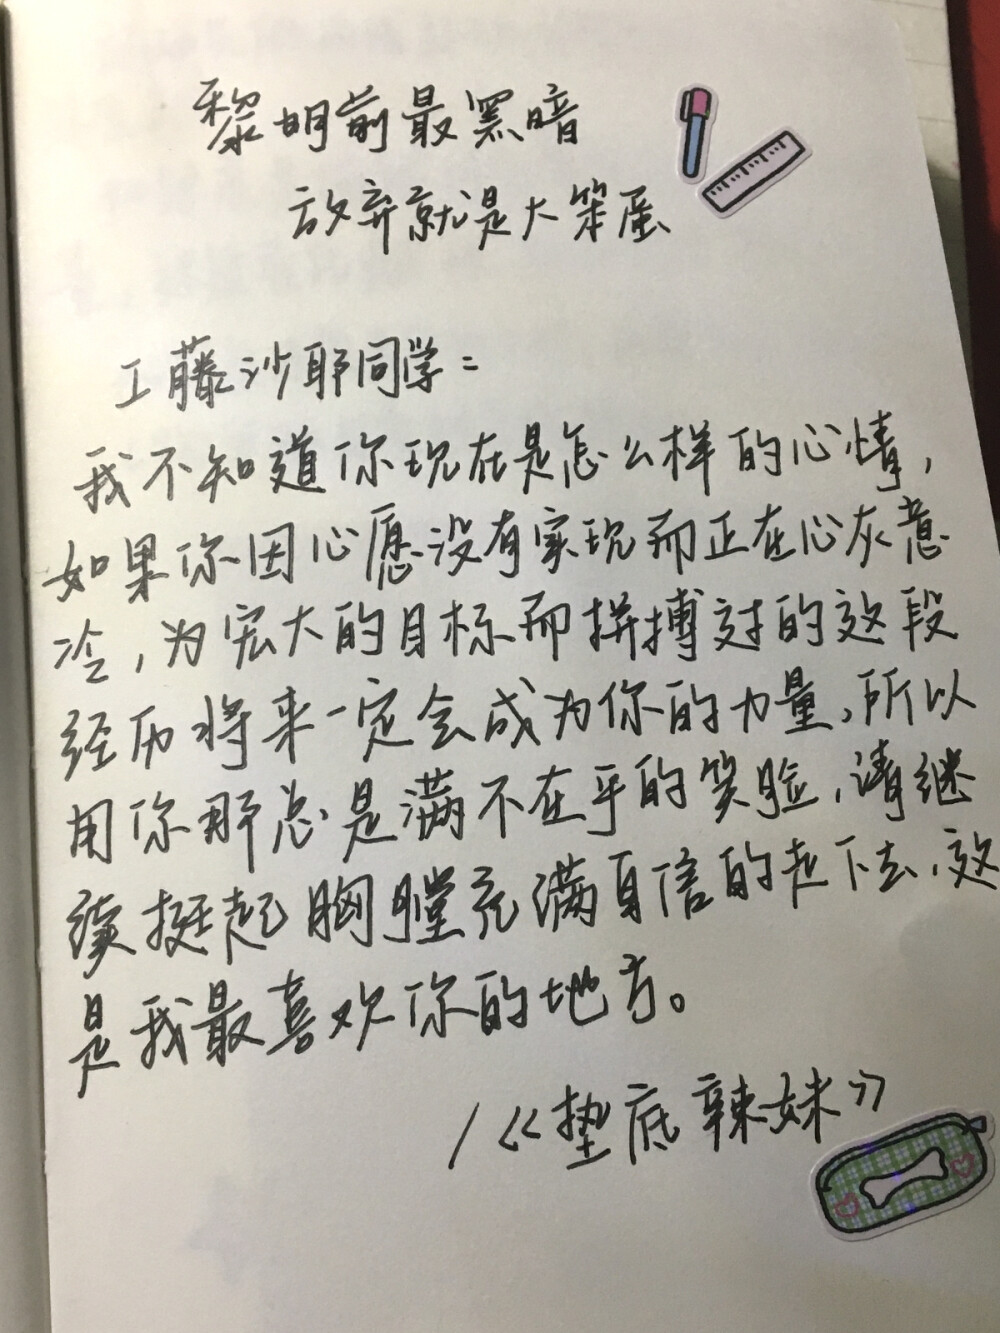 黎明前最黑暗
放弃就是大笨蛋
工藤沙耶同学：
我不知道你现在是怎么样的心情，
如果你因心愿没有实现而正在心灰意
冷，为宏大的目标而拼搏过的这段
经历将来一定会成为你的力量，所以
用你那总是满不在乎的笑脸，请继
续挺起胸膛充满自信的走下去，这
是我最喜欢你的地方。
/《垫底辣妹》